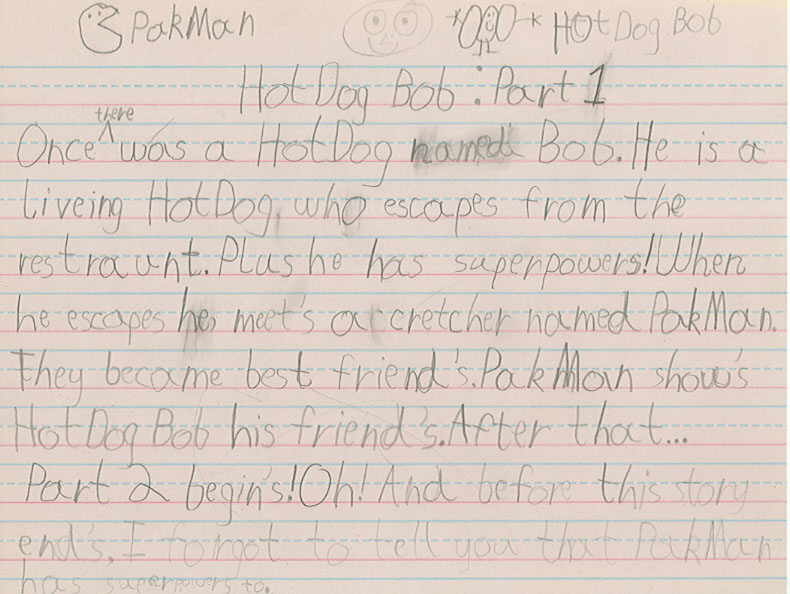 PakMan HotDog Bob
HotDog Bob: Part 1
Once there was a HotDog named Bob. He is a
liveing HotDog, who escapes from the
restraunt. Plus he has superpowers! When
he escapes he, meet's a cretcher named PakMan.
They became best friend's. PakMan show's
HotDog Bob his friend's. After that...
Part 2 begin's! Oh! And before this story
end's, I forgot to tell you that PakMan
has superpowers to.